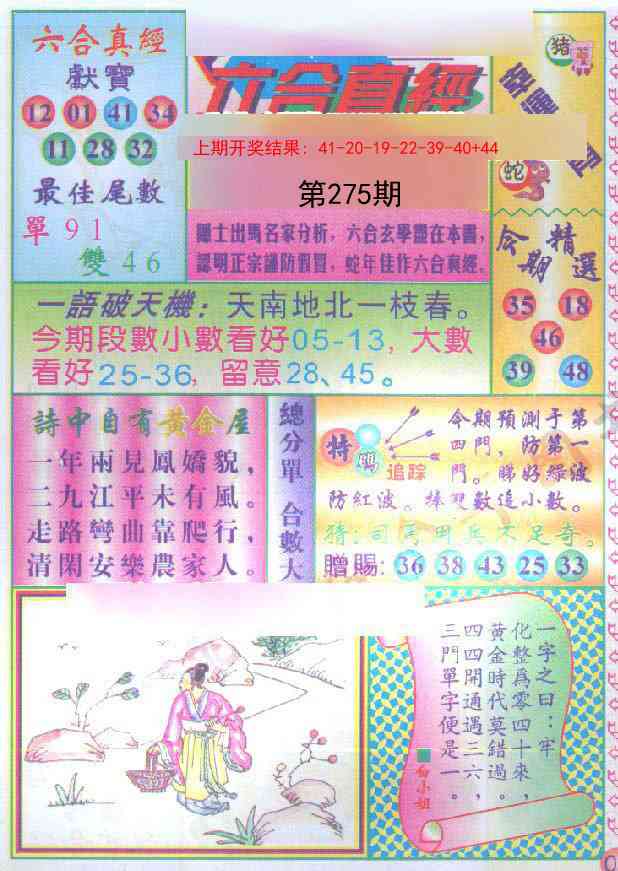 六合真經
獻寶
12 01 41 34
11 28 32
最佳尾數
單91
雙46
六合真經
上期开奖结果: 41-20-19-22-39-40+44
第275期
隱士出馬名家分析，六合玄學盡在本書，
認明正宗謹防假冒，蛇年佳作六合真經。
猪
蛇
今期
精選
35 18
46
39 48
一語破天機：天南地北一枝春。
今期段數小數看好05-13, 大數
看好25-36, 留意28、45。
詩中自有黃金屋
一年兩見鳳嬌貌，
二九江平未有風。
走路彎曲靠爬行，
清閑安樂農家人。
總分單 合數大
特
追踪
今期預測于第
四門，防第一
門。睇好綠波
防紅波。捧雙數追小數。
猜：司馬用兵不足奇。
贈賜: 36 38 43 25 33
一字之曰：牢
化整爲零四十來，
黃金時代莫錯過，
四四開通遇三六，
三門單字便是一。
白小姐